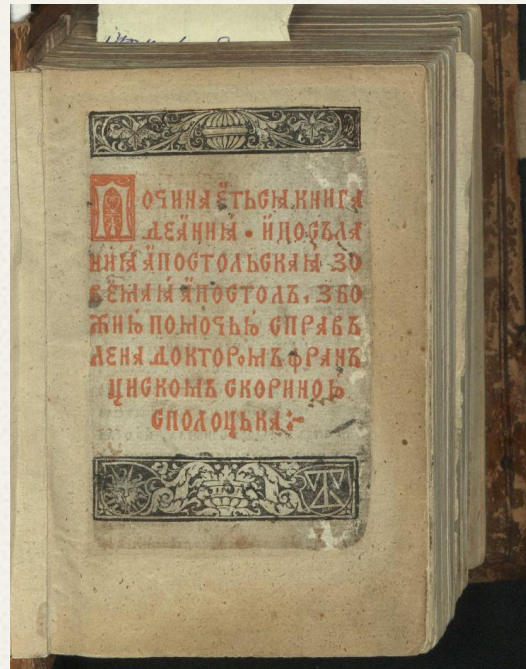 Починаётьсꙗ, книга
деꙗниꙗ • и́ посъла
ниꙗ а́постольскаꙗ зо
вемаꙗ а́постолъ, з бо
жию помочью справъ
лена докторомъ франъ
циском скориною
сполоцька:~